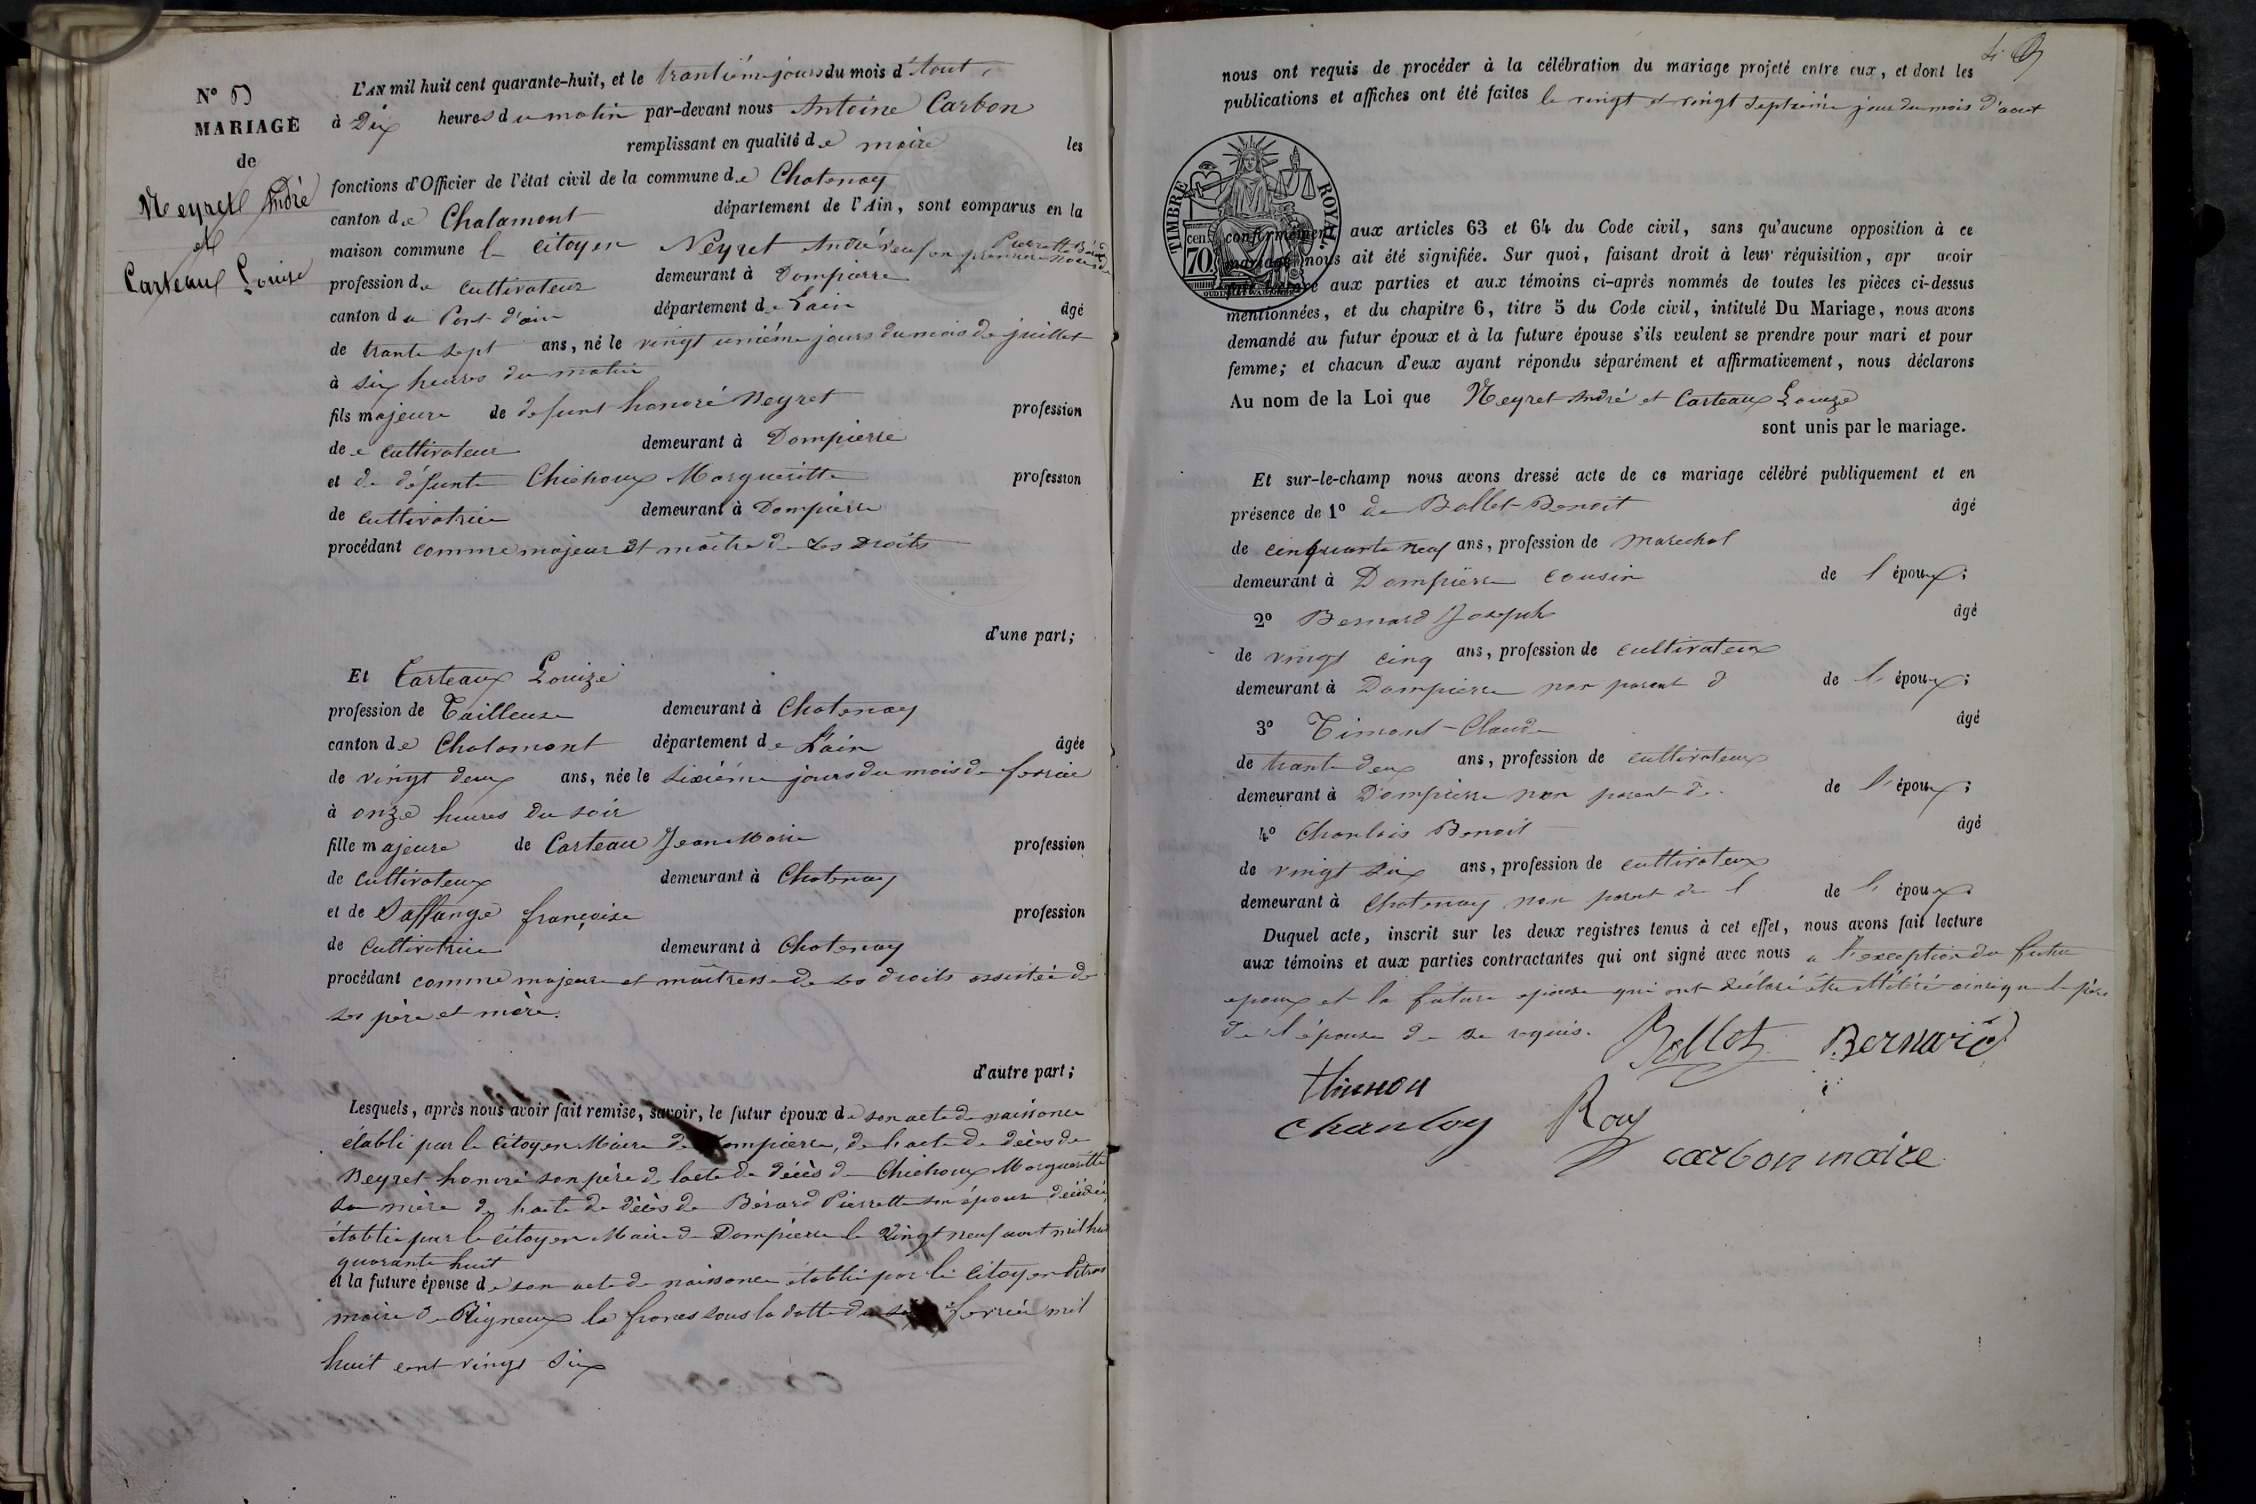 N° 5
MARIAGE
de
Neyret André
et
Carteaux Louize
L'AN mil huit cent quarante-huit, et le trantième jours du mois d'Aout,
à Dix heures du matin par-devant nous Antoine Carbon
remplissant en qualité de maire les
fonctions d'Officier de l'état civil de la commune de Chatenay
canton de Chalamont département de l'Ain, sont comparus en la
maison commune le citoyen Neyret André veuf en première noce de Pierrette Bérard
profession de cultivateur demeurant à Dompierre
canton du Pont d'ain département de Lain âgé
de trante sept ans, né le vingt unième jours du mois de juillet
à six heures du matin
fils majeure de defunt honoré Neyret profession
de cultivateur demeurant à Dompierre
et de défunte Chichoux Margueritte profession
de cultivatrice demeurant à Dompierre
procédant comme majeur et maître de ses droits
d'une part;
Et Carteaux Louize
profession de Tailleuse demeurant à Chatenay
canton de Chalamont département de Lain âgée
de vingt deux ans, née le sixième jours du mois de fevrier
à onze heures du soir
fille majeure de Carteau Jean Marie profession
de cultivateux demeurant à Chatenay
et de Saffange françoise profession
de cultivatrice demeurant à Chatenay
procédant comme majeure et maitresse de ses droits assistée de
ses père et mère.
d'autre part;
Lesquels, après nous avoir fait remise, savoir, le futur époux de son acte de naissance
établi par le citoyen Maire de Dompierre, de lacte de décès de
Neyret honoré son père de lacte de décès de Chichoux Margueritte
sa mère de lacte de décès de Bérard Pierrette son épouse décédée
établie par le citoyen Maire de Dompierre le vingt neuf aout mil huit
quarante huit
et la future épouse de son acte de naissance établi par le citoyen
maire de Rigneux le francs sous la datte du six fevrier mil
huit cent vingt six
nous ont requis de procéder à la célébration du mariage projeté entre eux, et dont les
publications et affiches ont été faites le vingt et vingt septième jour du mois d'aout
TIMBRE ROYAL
cent 70
conformément aux articles 63 et 64 du Code civil, sans qu'aucune opposition à ce
mariage nous ait été signifiée. Sur quoi, faisant droit à leur réquisition, apr avoir
fait lecture aux parties et aux témoins ci-après nommés de toutes les pièces ci-dessus
mentionnées, et du chapitre 6, titre 5 du Code civil, intitulé Du Mariage, nous avons
demandé au futur époux et à la future épouse s'ils veulent se prendre pour mari et pour
femme; et chacun d'eux ayant répondu séparément et affirmativement, nous déclarons
Au nom de la Loi que Neyret André et Carteaux Louize
sont unis par le mariage.
Et sur-le-champ nous avons dressé acte de ce mariage célébré publiquement et en
présence de 1° de Ballet Benoit âgé
de cinquante neuf ans, profession de marechal
demeurant à Dompierre cousin de l'époux;
2° Bernard Joseph âgé
de vingt cinq ans, profession de cultivateux
demeurant à Dompierre non parent d de l'époux;
3° Timont Claude âgé
de trante deux ans, profession de cultivateux
demeurant à Dompierre non parent de de l'époux;
4° Chanlois Benoit âgé
de vingt six ans, profession de cultivateux
demeurant à Chatenay non parent de l de l'époux.
Duquel acte, inscrit sur les deux registres tenus à cet effet, nous avons fait lecture
aux témoins et aux parties contractantes qui ont signé avec nous a l'exception du futur
epoux et la future epouse qui ont déclaré être illitéré ainsi que le père
de l'épouse de se requis.
Ballet Bernard
thimon
chanloy Roy
carbon maire